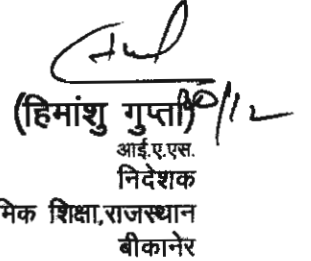 30/12
(हिमांशु गुप्ता)
आई.ए.एस.
निदेशक
मिक शिक्षा,राजस्थान
बीकानेर